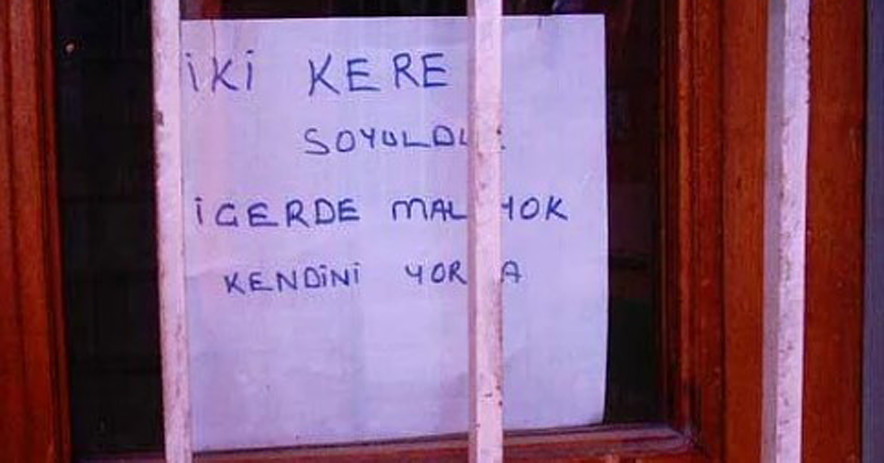 İKİ KERE
SOYULDU
İÇERDE MAL YOK
KENDİNİ YORMA